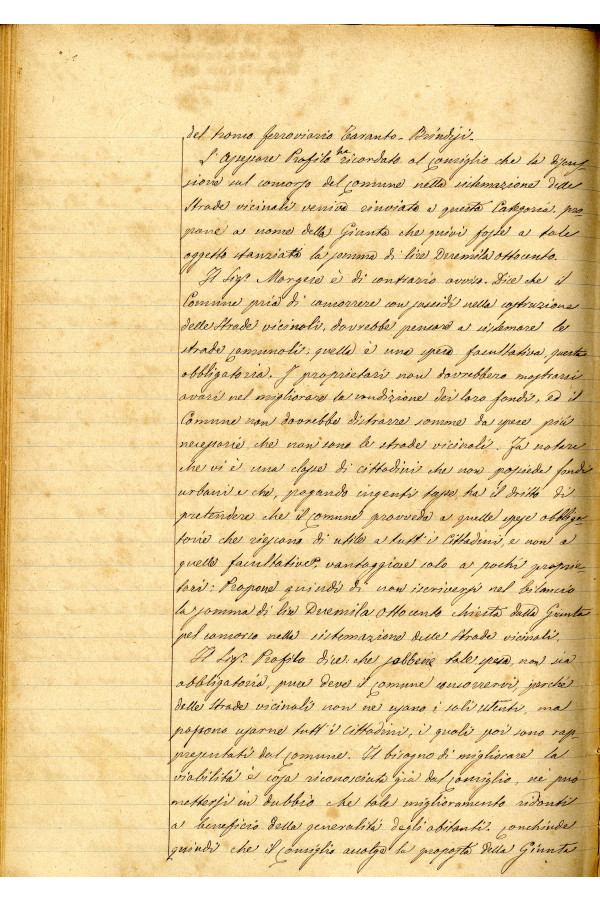 del tronco ferroviario Taranto-Brindisi.
L'Assessore Profilo ha ricordato al Consiglio che la discus-
sione sul concorso del Comune nella sistemazione delle
Strade vicinali veniva rinviata a questa Categoria, pro-
pone a nome della Giunta che quivi fosse a tale
oggetto stanziata la somma di lire Duemila ottocento.
Il Sigr. Margese è di contrario avviso. Dice che il
Comune pria di concorrere con sussidi nella costruzione
delle Strade vicinali, dovrebbe pensare a sistemare le
strade comunali; quella è una spesa facultativa, questa
obbligatoria. I proprietari non dovrebbero mostrarsi
avari nel migliorare la condizione dei loro fondi, ed il
Comune non dovrebbe distrarre somme da spese più
necessarie che non sono le strade vicinali. Fa notare
che vi è una classe di cittadini che non possiede fondi
urbani e che, pagando ingenti tasse, ha il dritto di
pretendere che il Comune provveda a quelle spese obbliga-
torie che riescono di utile a tutt'i Cittadini, e non a
quelle facultative, vantaggiose solo a pochi proprie-
tari: Propone quindi di non iscriversi nel bilancio
la somma di lire Duemila Ottocento chiesta dalla Giunta
pel concorso nella sistemazione delle Strade vicinali.
Il Sigr. Profilo dice: che sebbene tale spesa, non sia
obbligatoria, pure deve il Comune concorrervi, perché
delle Strade vicinali non ne usano i soli utenti, ma
possono usarne tutt'i Cittadini, i quali poi sono rap-
presentati dal Comune. Il bisogno di migliorare la
viabilità è cosa riconosciuta già dal Consiglio, né può
mettersi in dubbio che tale miglioramento ridondi
a beneficio della generalità degli abitanti. Conchiude
quindi che il Consiglio accolga la proposta della Giunta